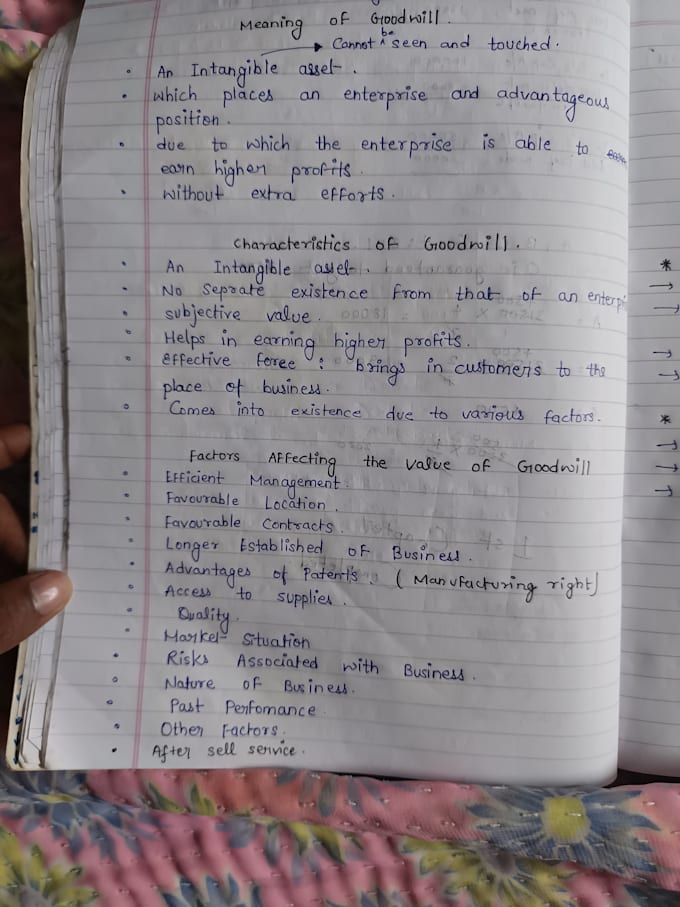 Meaning of Goodwill.
Cannot be seen and touched.
• An Intangible asset.
• which places an enterprise and advantageous
position.
• due to which the enterprise is able to
earn higher profits.
• without extra efforts.
Characteristics of Goodwill.
• An Intangible asset.
• No Seprate existence from that of an
• subjective value.
• Helps in earning higher profits.
• effective force : brings in customers to the
place of business.
• Comes into existence due to various factors.
Factors Affecting the value of Goodwill
• Efficient Management.
• Favourable Location.
• Favourable Contracts.
• Longer Established of Business.
• Advantages of Patent's. (Manufacturing right)
• Access to supplies.
• Quality.
• Market Situation
• Risks Associated with Business.
• Nature of Business.
• Past Perfomance
• Other Factors.
• After sell service.